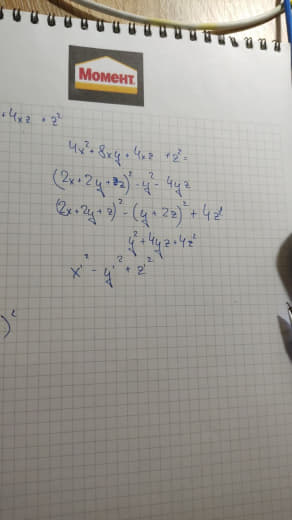 Момент.
+4xz +z²
4x²+8xy+4xz +z²=
(2x+2y+z)² - y² - 4yz
(2x+2y+z)² - (y+2z)² + 4z²
y²+4yz+4z²
x'² - y'² + z'²
)²